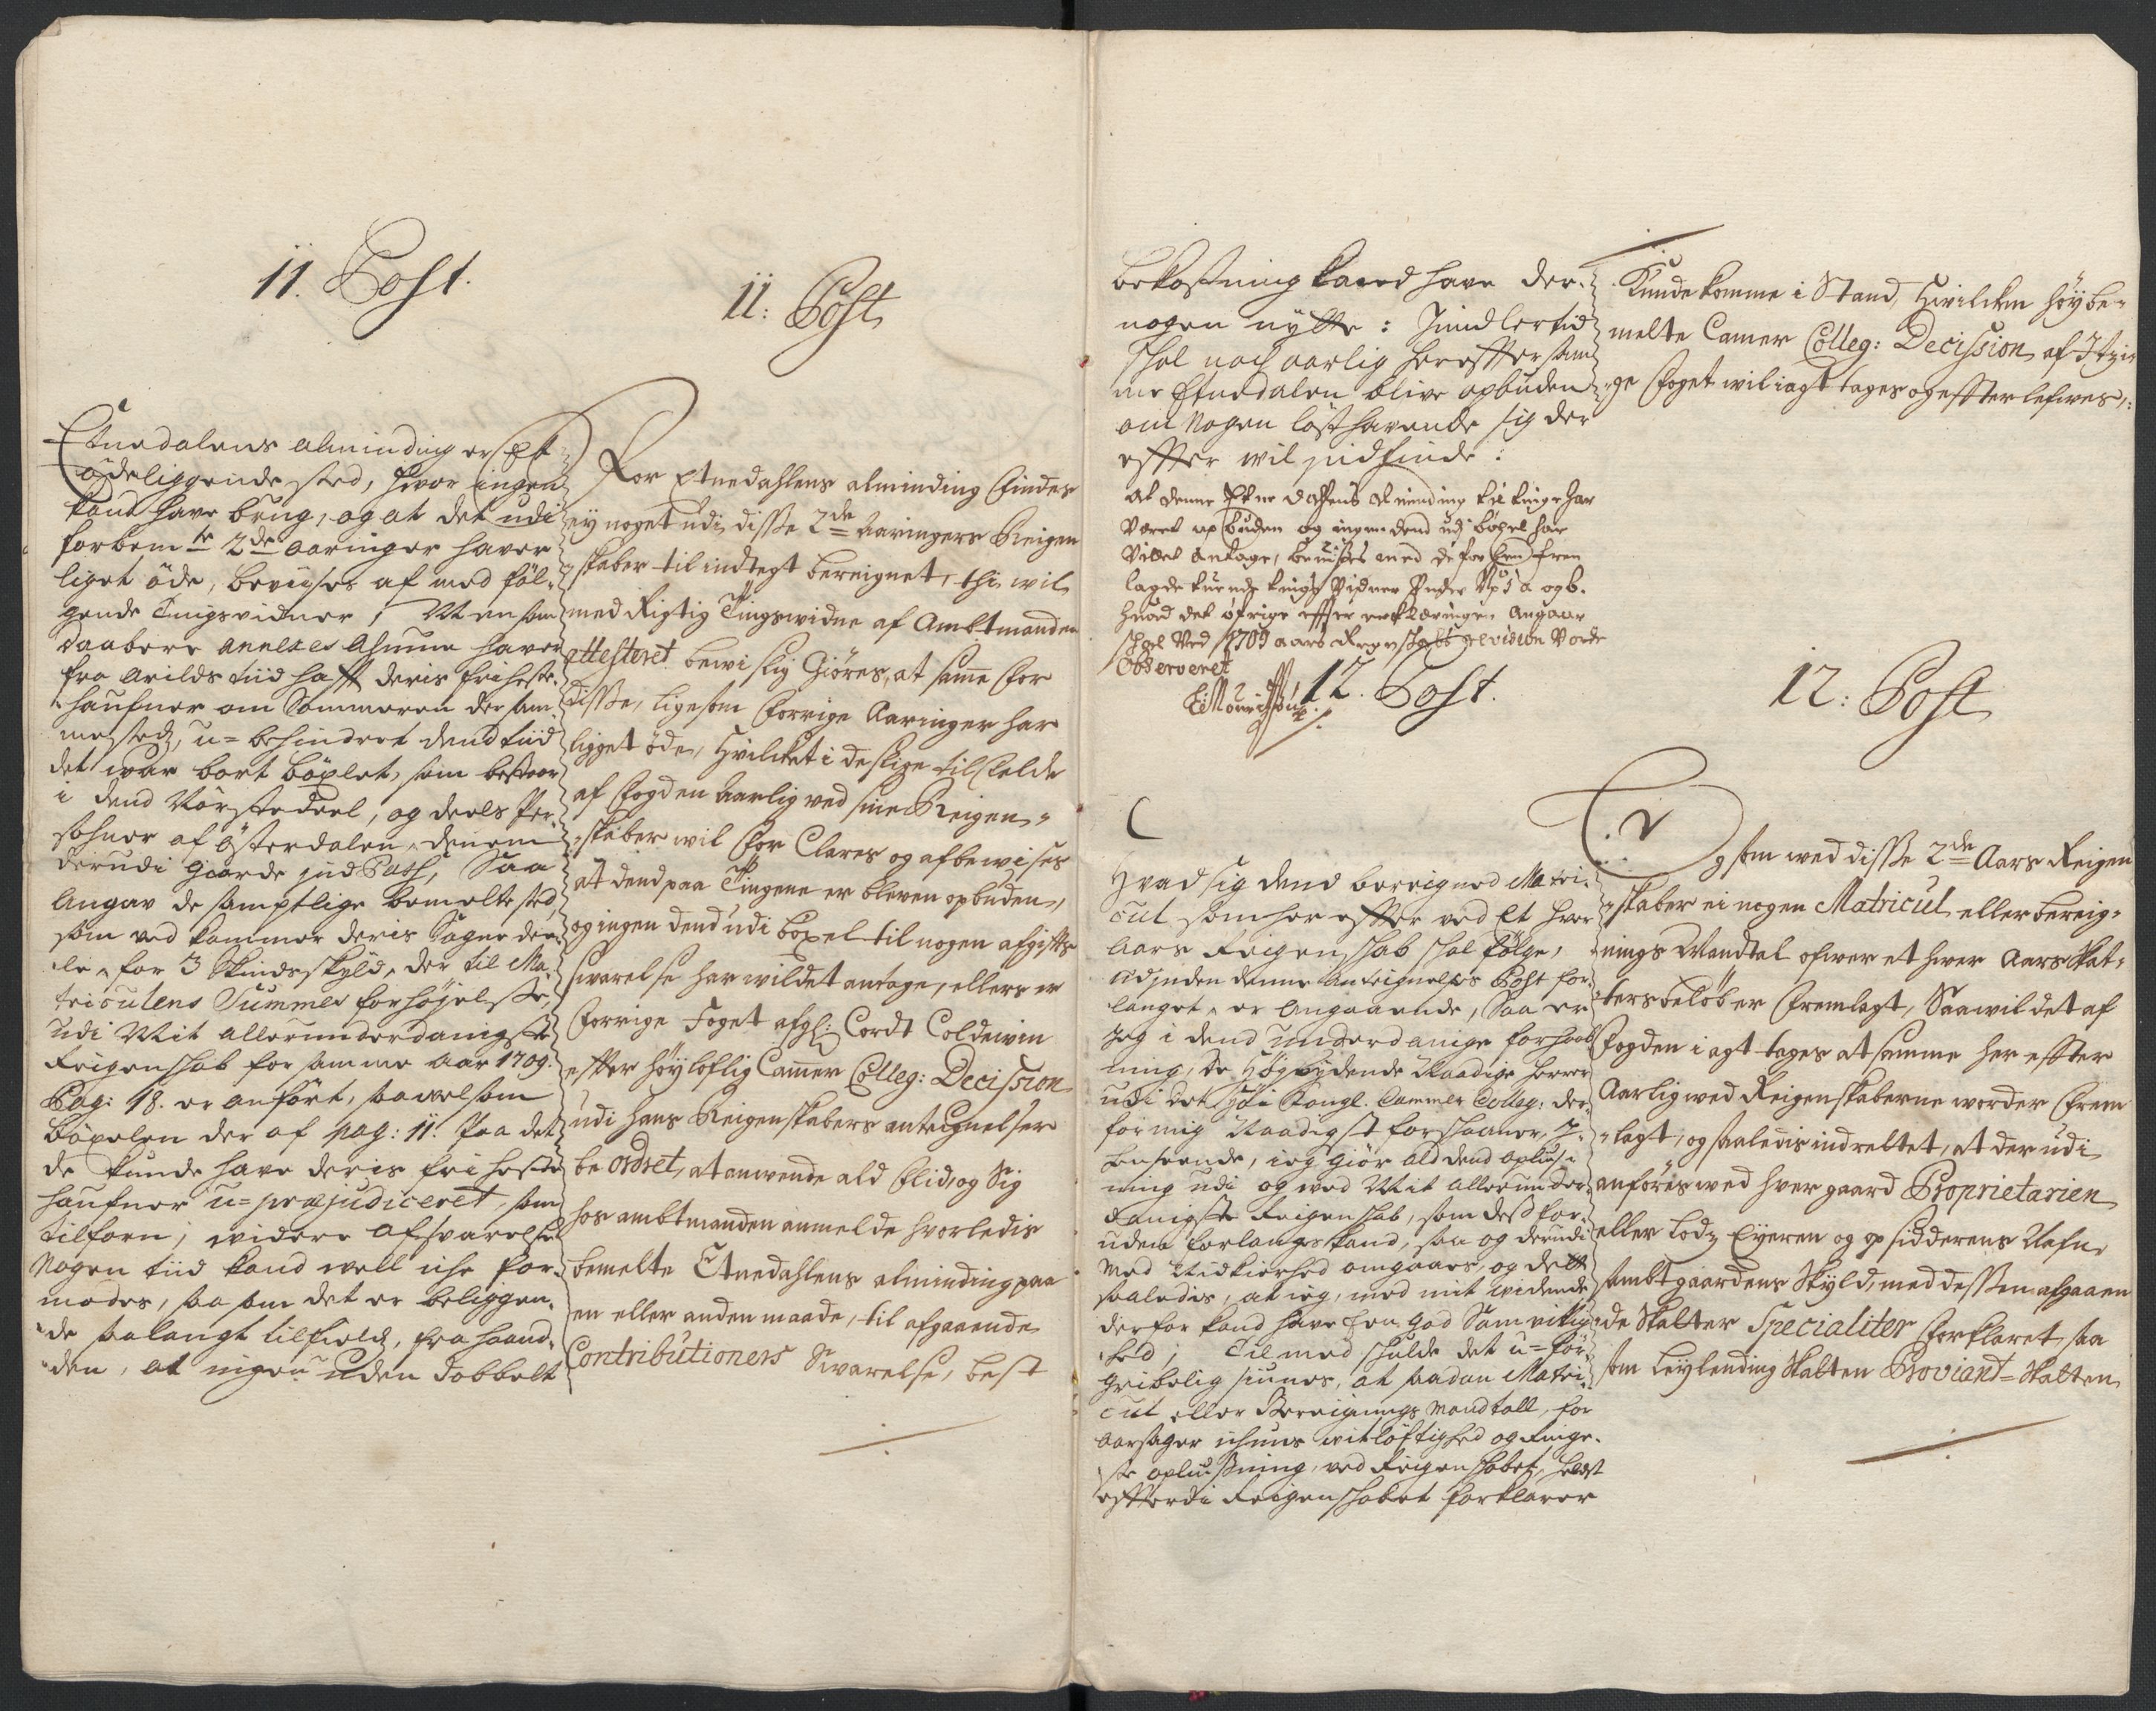 11. Post.
Etnedalens alminding er Et
ödeliggende sted, hvor ingen
kand have brug, og at det udi
forbem.te 2de aaringer haver
liget öde, beviises af med föl-
gende Tingsvidner; Men som
Daabere annexes Almue haver
fra Arilds tiid hafft deris friheste-
haufner om Sommeren der sam-
me sted, u-behindret dend tiid
det war bort böxlet, som bestaar
i dend Nörstedeel, og deels Per-
sohner af Österdalen, denem
derudi giorde ind Pass, Saa
Angav de samptlige bemelte sted,
som ved kommer deris Sogne der-
ile, for 3 Skindsskyld, der til Ma-
triculens Summes forhöjelse,
udi Mit allerunderdanigste
Reigenskab for samme Aar 1709.
Pag: 18. er anfört, saavelsom
böxelen der af pag: 11. Paa det
de kunde have deris fri heste
haufner u-præjudiceret, som
tilforn; videre afsvarelse
Nogen tiid kand well iche for-
modes, saasom det er beliggen-
de saalangt tilfields, fra haand-
den, at ingen uden dobbelt
11: Post
For Etnedahlens alminding findes
ey noget udi disse 2de Aaringers Reigen
skaber til indtegt bereignet, thi wil
med Rigtig Tingswidne af Ambtmanden
attesteret bewislig Giöres, at samme for
disse, ligesom forrige Aaringer har
ligget öde, Hvilcket i deslige tilfelde
af fogden Aarlig ved sine Reigen-
skaber wil for Clares og afbewises
at dend paa Tingene er bleven opbuden,
og ingen dend udi böxel til nogen afgiffts
swarelse har wildet antage, ellers er
forrige Foget afgl: Cordt Coldewin
effter höylofflig Camer Colleg: Decission
udi hans Reigenskabers antegnelser
be ordret, at anvende ald flid og Sig
hos ambtmanden anmelde hvorledis
bemelte Etnedahlens alminding paa
en eller anden maade, til afgaaende
Contributioners Swarelse, best
bekostning kand have der-
nogen nytte: Imidlertid
skal noch aarlig hereffter sam-
me Etnedalen blive opbuden
om Nogen lösthavende sig der
effter wil indfinde:
At denne Etnedahlens Alminding til tinge har
Været op buden og ingen dend udj böxel har
Villet antage, bevises med de for hen frem
lagde tvende tings Vidner Under No 5 a og b.
hvad det öfrige effter erklæringen Angaar
skal Ved 1709 aars Regenskabs revision Vorde
Observeret
Kunde komme i Stand, Hvilcken höybe-
melte Camer Colleg: Decission af Itzi-
ge foget wil iagttages og effterlefwes,:
12. Post.
Hvad sig dend berreigned Matri-
cul som her effter ved Et hver
Aars Reigenskab skal fölge,
Udj enden denne Antegnelses Post for-
langet, er Angaaende, Saa er
Jeg i dend Underdanige forhaab-
ning, de Högbydende Naadige herrer
udi det Höje Kongl. Cammer Colleg: der-
for mig Naadigst forskaaner, J-
henseende, ieg giör ald dend oplys-
ning udi og ved Mit allerunder-
danigste Reigenskab, som desfor-
uden forlanges kand, saa og derudi
Med Nidkierhed omgaaes, og dette
saaledes, at ieg, med mit vidende
derfor kand have een god Samvittig-
hed; Til med skulde det u-for-
gribelig siunes, at saadan Matri-
cul eller Bereignings Mandtall, for
aarsager ichuns witlöftighed og Ringe-
ste oplysning, ved Reigenskabet, helst
effterdi Reigenskabet forklarer
12: Post
Og som wed disse 2de Aars Reigen
skaber ei nogen Matricul eller bereig-
nings Mandtal ofwer et hwer Aars Skat-
ters belöb er fremlagt, Saa wil det af
fogden i agt tages at samme her effter
Aarlig wed Reigenskaberne worder frem
lagt, og saaledis indrettet, at der udi
anföris wed hver gaard Proprietarien
eller Lodz Eyeren og opsidderens Nafn,
sambt gaardens Skyld, med dessen afgaaen
de Skatter Specialiter forklaret saa
som Leylending Skatten Proviant-Skatten